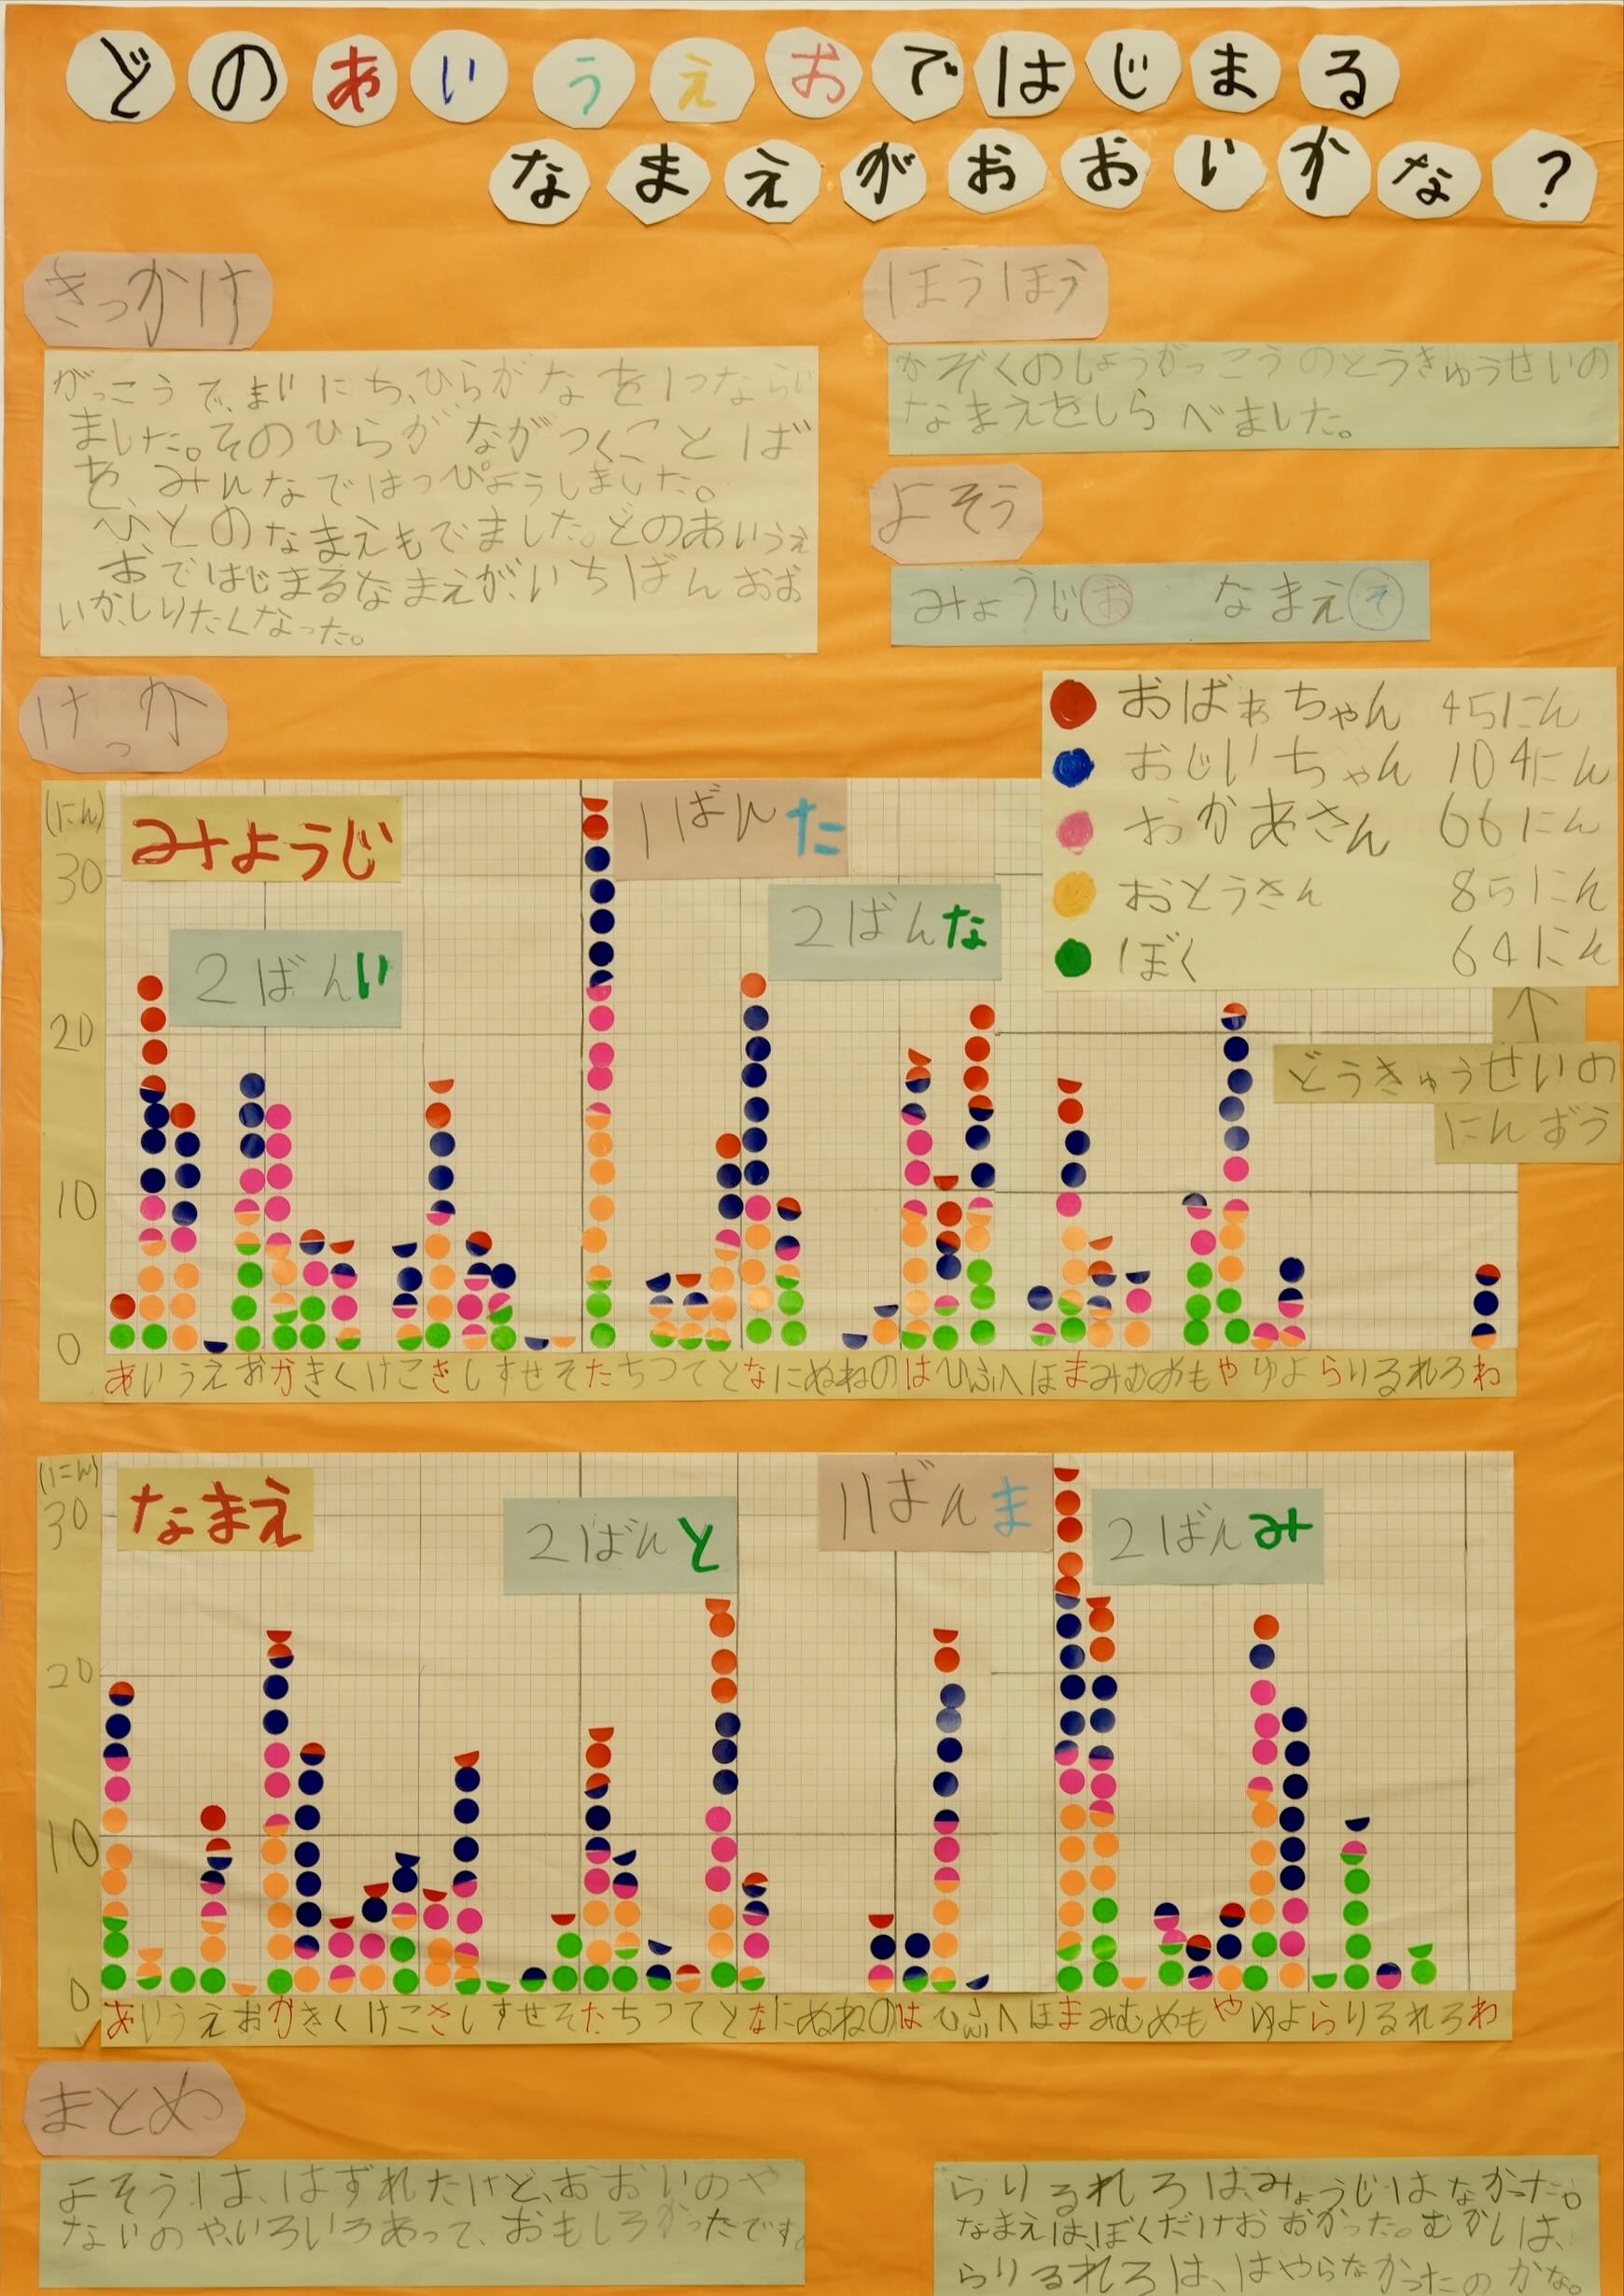 どのあいうえおではじまる
なまえがおおいかな?
きっかけ
がっこうで、まいにち、ひらがなを1つならい
ました。そのひらがながつくことば
を、みんなではっぴょうしました。
ひとのなまえもでました。どのあいうえ
おではじまるなまえが、いちばんおお
いか、しりたくなった。
ほうほう
かぞくのしょうがっこうのどうきゅうせいの
なまえをしらべました。
よそう
みょうじお なまえそ
けっか
おばぁちゃん 45にん
おじいちゃん 104にん
おかあさん 66にん
おとうさん 85にん
ぼく 64にん
↑
どうきゅうせいの
にんずう
(にん)
みょうじ
1ばんた
2ばんな
2ばんい
30
20
10
0
あいうえおかきくけこさしすせそたちつてとなにぬねのはひふへほまみむめもやゆよらりるれろわ
(にん)
なまえ
2ばんと
1ばんま
2ばんみ
30
20
10
0
あいうえおかきくけこさしすせそたちつてとなにぬねのはひふへほまみむめもやゆよらりるれろわ
まとめ
よそうは、はずれたけど、おおいのや
ないのや、いろいろあって、おもしろかったです。
らりるれろは、みょうじはなかった。
なまえは、ぼくだけおおかった。むかしは、
らりるれろは、はやらなかったのかな。